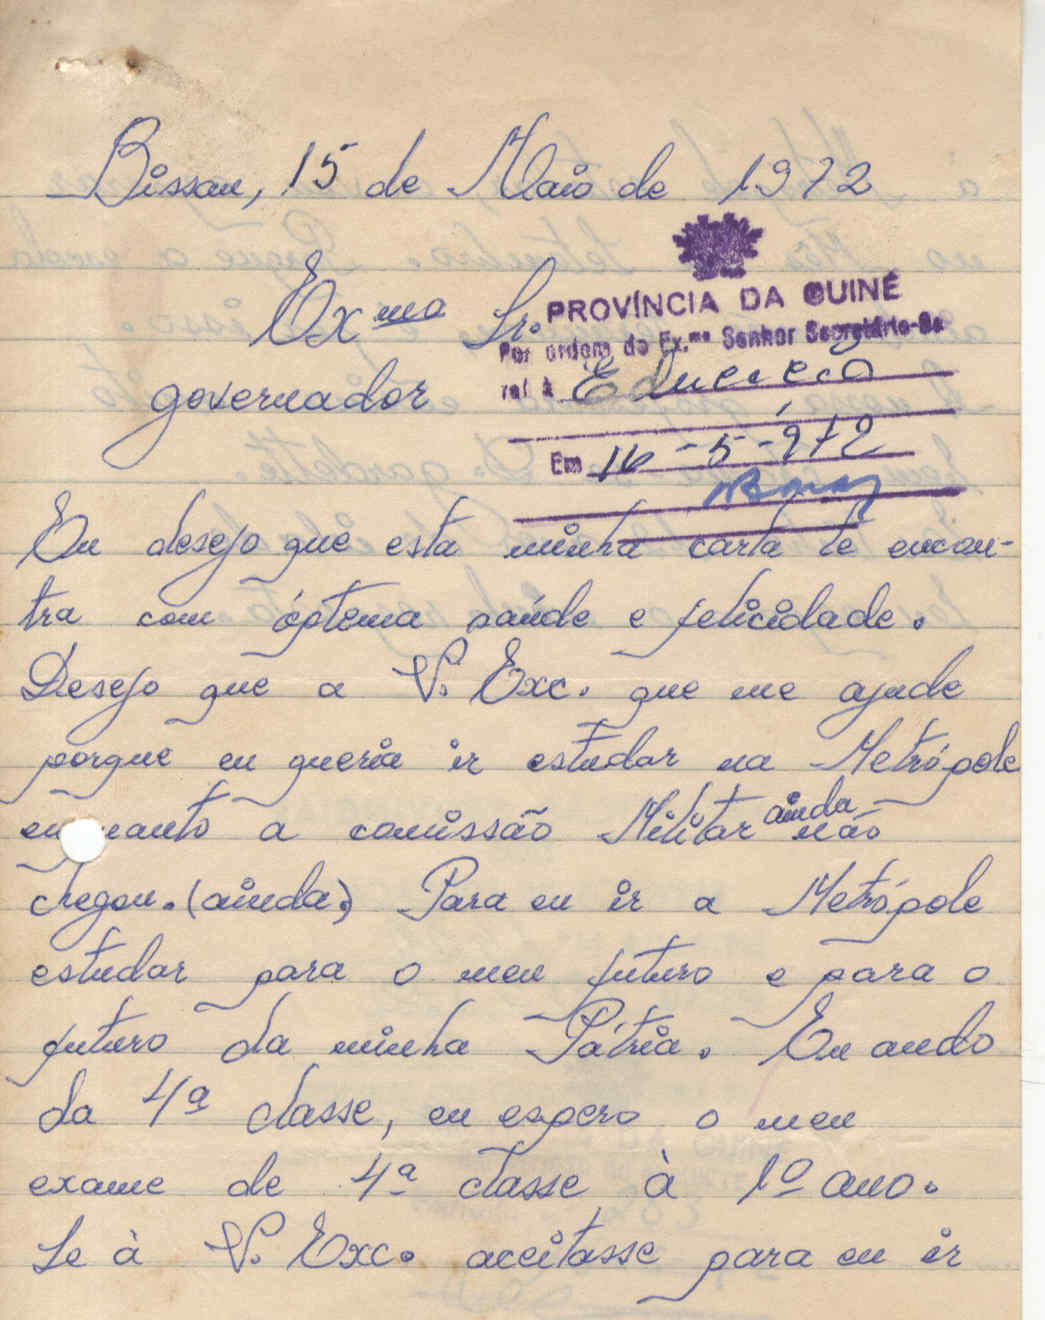 Bissau, 15 de Maio de 1972
Exmo Sr.
governador
PROVÍNCIA DA GUINÉ
Por ordem do Ex.mo Senhor Secretário-Ge
ral à Educação
Em 16-5-972
Eu desejo que esta minha carta te encon-
tra com óptema saúde e felicidade.
Desejo que a V. Exc. que me ajude
porque eu queria ir estudar na Metrópole
enquanto a comissão Militar ainda não
chegou. (ainda.) Para eu ir a Metrópole
estudar para o meu futuro e para o
futuro da minha Pátria. Eu ando
da 4ª classe, eu espero o meu
exame de 4ª classe à 1º ano.
Se à V. Exc. aceitasse para eu ir